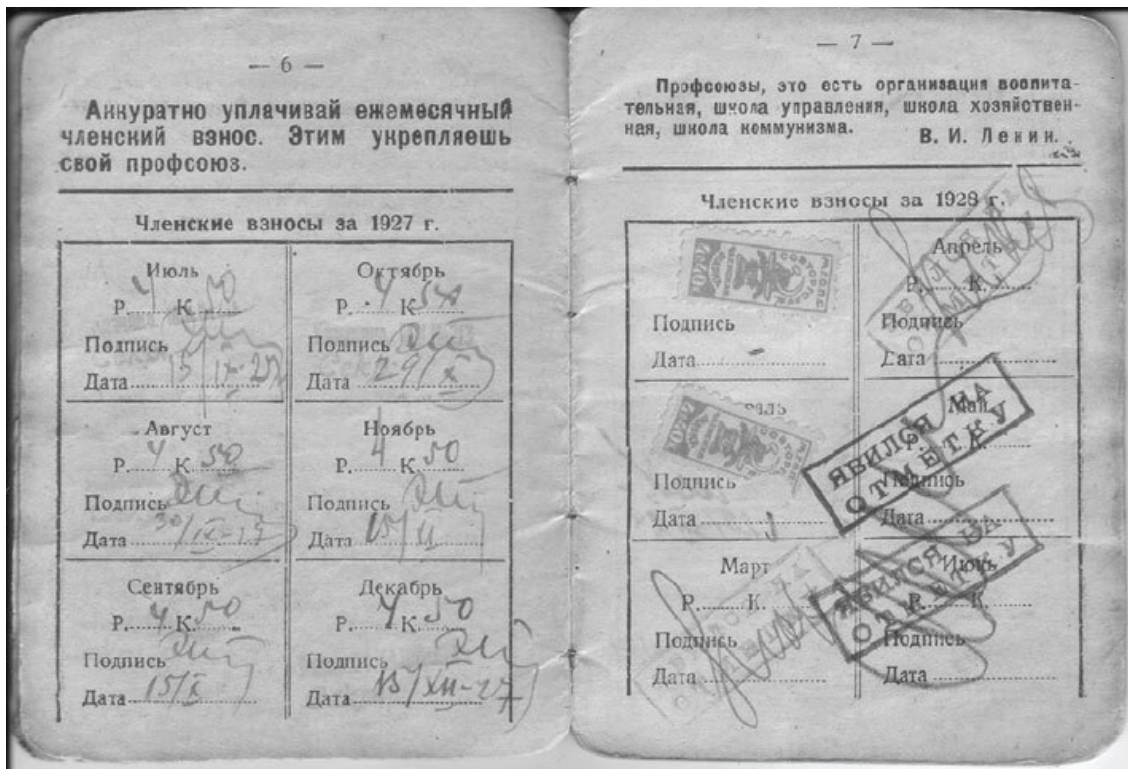 — 6 —
Аккуратно уплачивай ежемесячный
членский взнос. Этим укрепляешь
свой профсоюз.
Членские взносы за 1927 г.
Июль
Р. 4 К. 50
Подпись
Дата 15/IX-27
Октябрь
Р. 4 К. 50
Подпись
Дата 29/X
Август
Р. 4 К. 50
Подпись
Дата 30/IX-27
Ноябрь
Р. 4 К. 50
Подпись
Дата 15/XI
Сентябрь
Р. 4 К. 50
Подпись
Дата 15/X
Декабрь
Р. 4 К. 50
Подпись
Дата 15/XII-27
— 7 —
Профсоюзы, это есть организация воспита-
тельная, школа управления, школа хозяйствен-
ная, школа коммунизма.
В. И. Ленин.
Членские взносы за 1928 г.
Подпись
Дата
Апрель
Р. К.
Подпись
Дата
ЯВИЛСЯ НА
ОТМЕТКУ
Подпись
Дата
Май
К.
Подпись
Дата
ЯВИЛСЯ НА
ОТМЕТКУ
Март
Р. К.
Подпись
Дата
Июнь
Р. К.
Подпись
Дата
ЯВИЛСЯ НА
ОТМЕТКУ